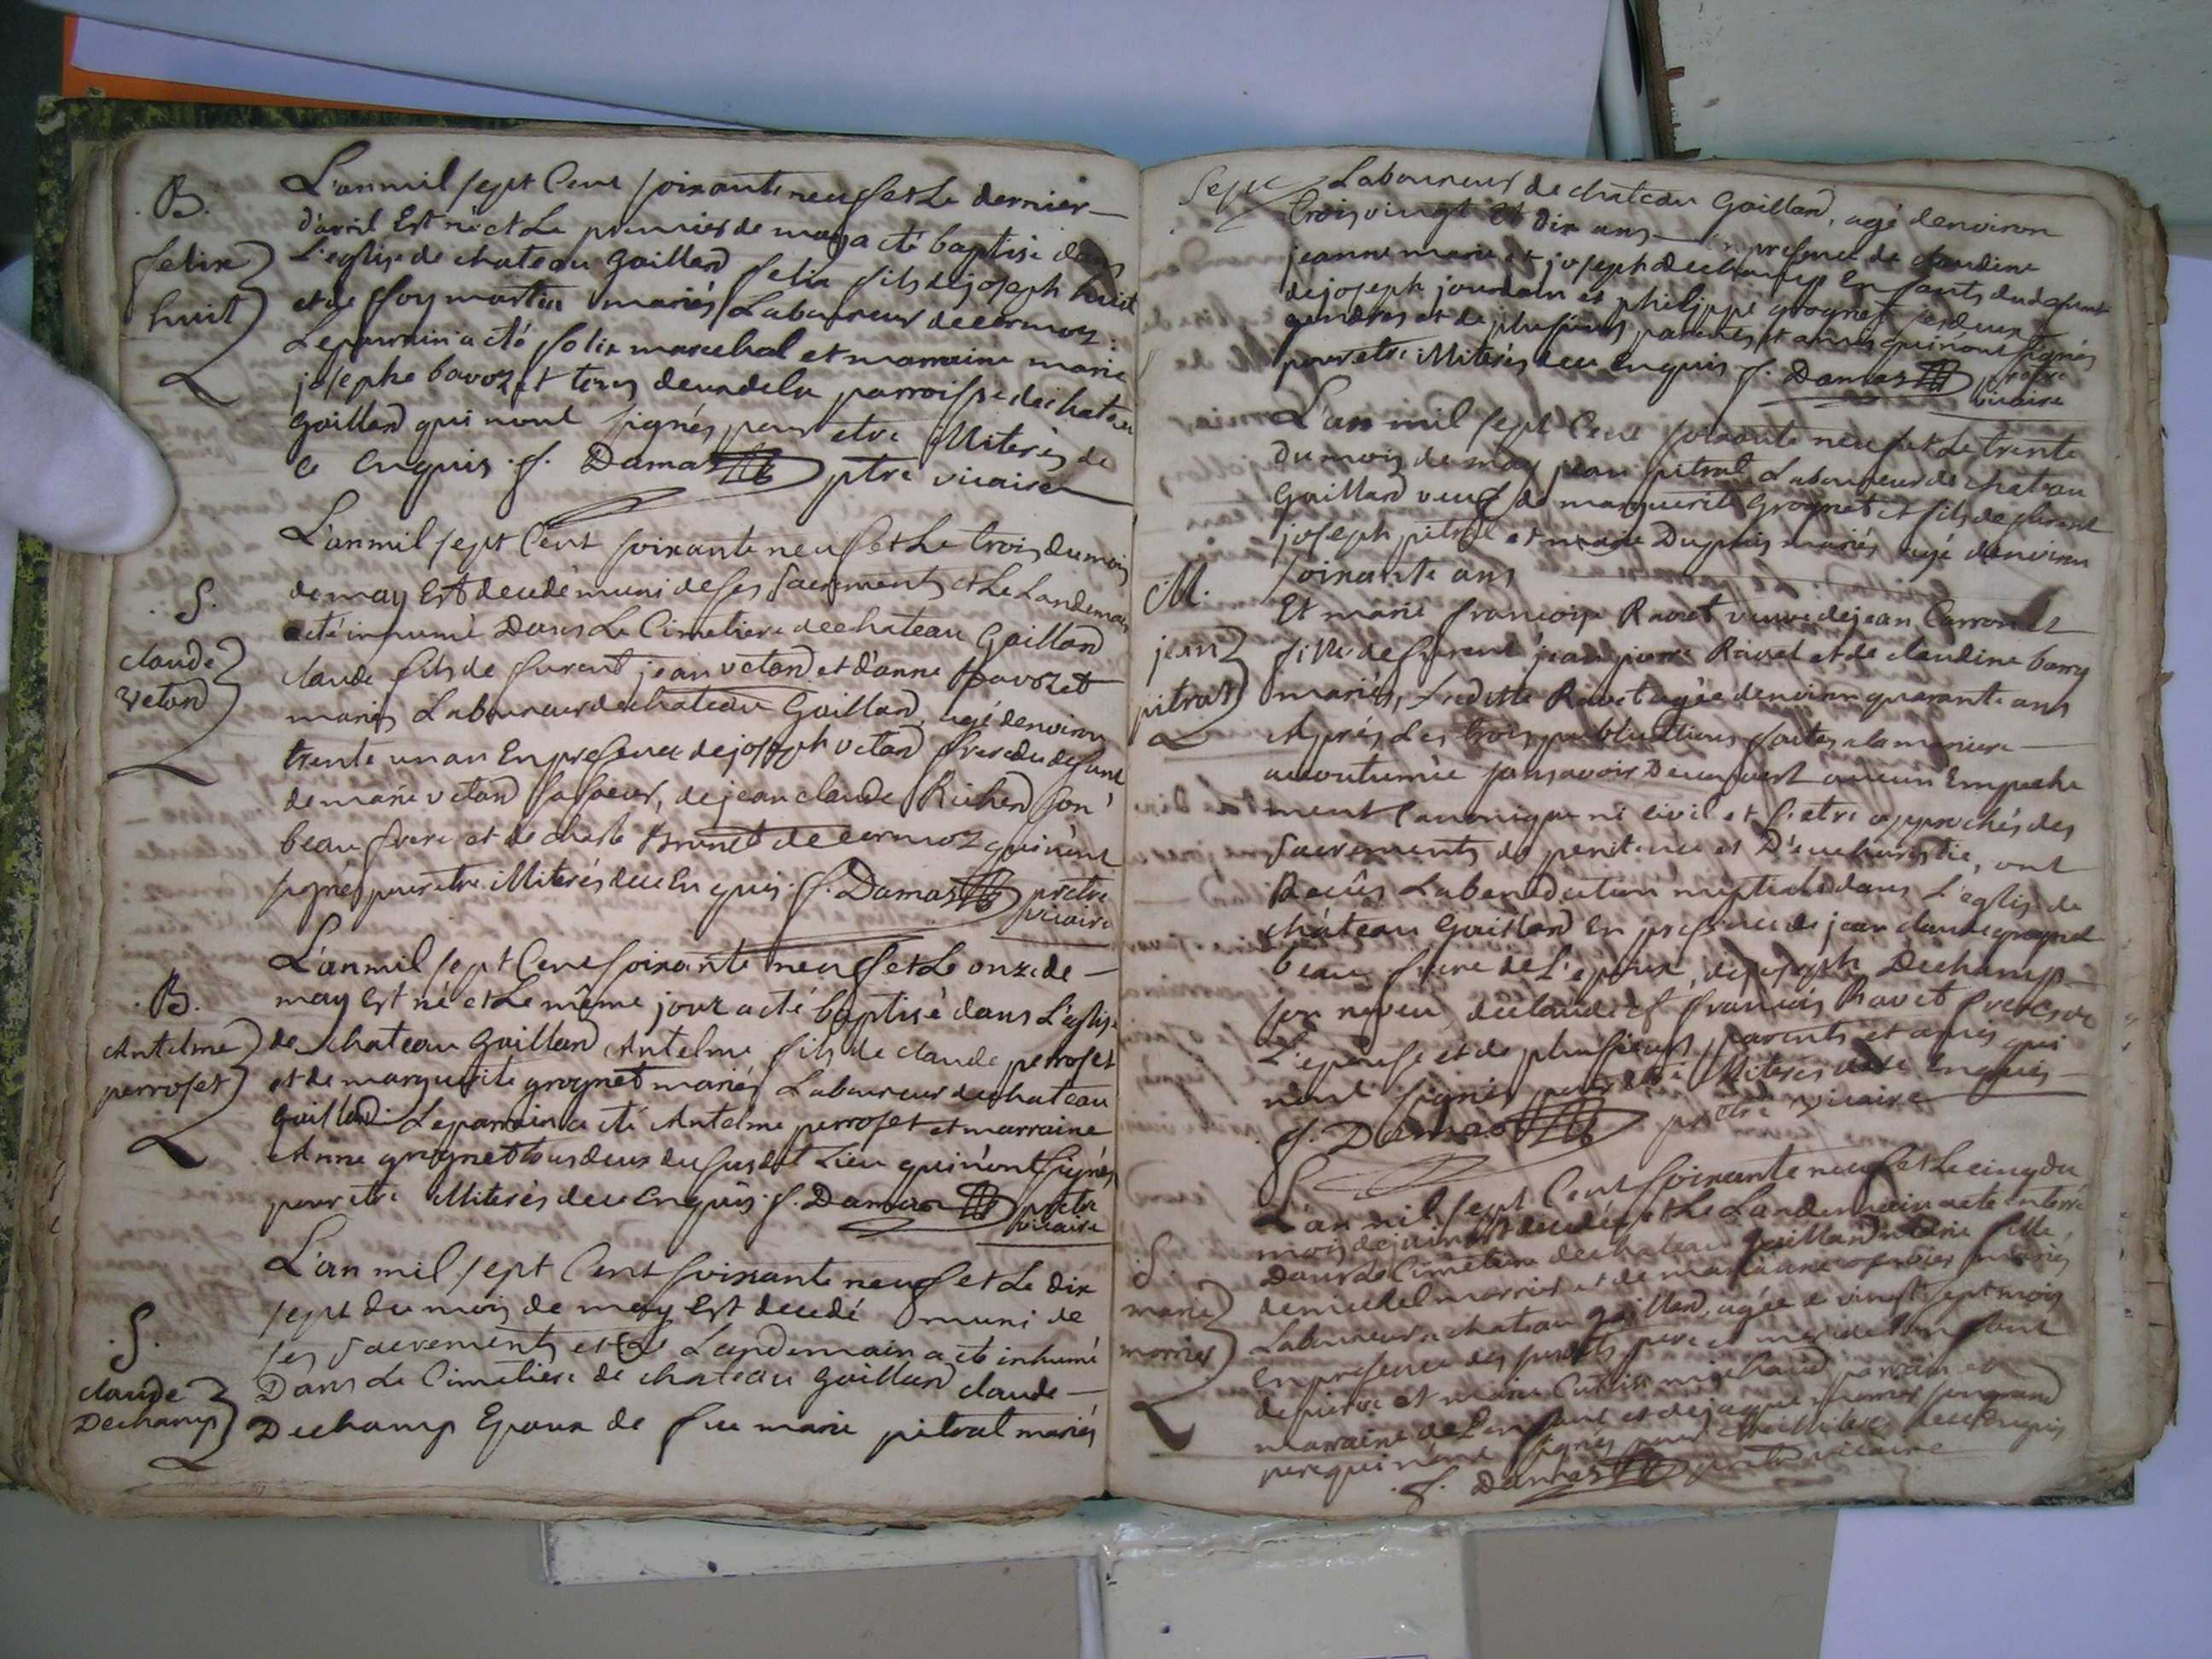 B.
felix
huit
L'an mil sept Cent soixante neuf et Le dernier
d'avril Est né et Le premier de may a eté baptisé dans
L'eglise de chateau Gaillard felix fils de joseph huit
et de foy martin mariés Laboureur de cormoz.
Le parrain a eté felix marechal et marraine marie
josephe bavozet tous deux de la parroisse de chateau
Gaillard qui n'ont signés pour etre illiterés de
ce Enquis. f. Damas ptre vicaire
S.
claude
vetard
L'an mil sept Cent soixante neuf et Le trois du mois
de may Est decedé muni de ses sacrements et Le Landemain
a eté inhumé Dans Le Cimetiere de chateau Gaillard
claude fils de furent jean vetard et d'anne bavozet
mariés Laboureur de chateau Gaillard, agé d'environ
trente un an En presence de joseph vetard frere du defunt
de marie vetard sa soeur, de jean claude Richerd son
beau frere et de charle brunet de cormoz qui n'ont
signés pour etre illiterés de ce Enquis. f. Damas pretre
vicaire
B.
Antelme
perroset
L'an mil sept Cent soixante neuf et Le onze de
may Est né et Le même jour a eté baptisé dans L'eglise
de chateau Gaillard Antelme fils de claude perroset
et de marguerite grognet mariés Laboureur de chateau
gaillard. Le parrain a eté Antelme perroset et marraine
Anne grognet tous deux du susdit Lieu qui n'ont signés
pour etre illiterés de ce Enquis. f. Damas pretre
vicaire
S.
claude
Dechamp
L'an mil sept Cent soixante neuf et Le dix
sept du mois de may Est decedé muni de
ses sacrements et Le Landemain a eté inhumé
Dans Le Cimetiere de chateau Gaillard claude
Dechamp Epoux de fue marie pitrat mariés
Sept
Laboureur de chateau Gaillard, agé d'environ
trois vingt et dix ans En presence de claudine
jeanne marie et joseph dechamp Enfants dud
de joseph jourdain et philippe grognet ses deux
gendres et de plusieurs parents et amis qui n'ont signés
pour etre illiterés de ce Enquis f. Damas pretre
vicaire
M.
jean
pitrat
L'an mil sept Cent soixante neuf et Le trente
Du mois de may jean pitrat Laboureur de chateau
Gaillard veuf de marguerite Grognet et fils de furent
joseph pitrat et marie Dupuis mariés agé d'environ
soixante ans
Et marie françoise Ravet veuve de jean Carron et
fille de furent jean pierre Ravet et de claudine
mariés, Laditte Ravet agée d'environ quarante ans
Après Les trois publications faites a la maniere
accoutumée sans avoir Decouvert aucun Empeche
ment Canonique ni civil et s'etre approchés des
sacrements de penitence et D'eucharistie, ont
Reçûs La benediction nuptiale dans L'eglise de
château Gaillard En presence de jean claude grognet
beau frere de L'epoux, de joseph Dechamp
son neveu, de claude et françois Ravet freres de
L'epouse et de plusieurs parents et amis qui
n'ont signés pour etre illiterés de ce Enquis
f. Damas pretre vicaire
S.
marie
morrier
L'an mil sept Cent soixante neuf et Le cinq du
mois de juin Est decedée et Le Landemain a eté enterré
Dans Le Cimetiere de chateau Gaillard marie fille
de michel morrier et de marianne mariés
Laboureur a chateau gaillard, agée de vingt sept mois
En presence des susdits pere et mere de L'enfant
de pierre et marie michaud parrain et
marraine de L'enfant et de jaque morrier son grand
pere qui n'ont signés pour etre illiterés de ce Enquis
f. Damas pretre vicaire